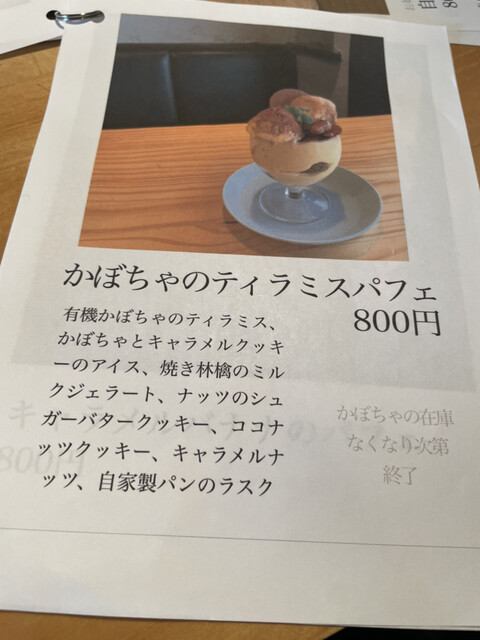 かぼちゃのティラミスパフェ
800円
有機かぼちゃのティラミス、
かぼちゃとキャラメルクッキ
ーのアイス、焼き林檎のミル
クジェラート、ナッツのシュ
ガーバタークッキー、ココナ
ッツクッキー、キャラメルナ
ッツ、自家製パンのラスク
かぼちゃの在庫
なくなり次第
終了
800円